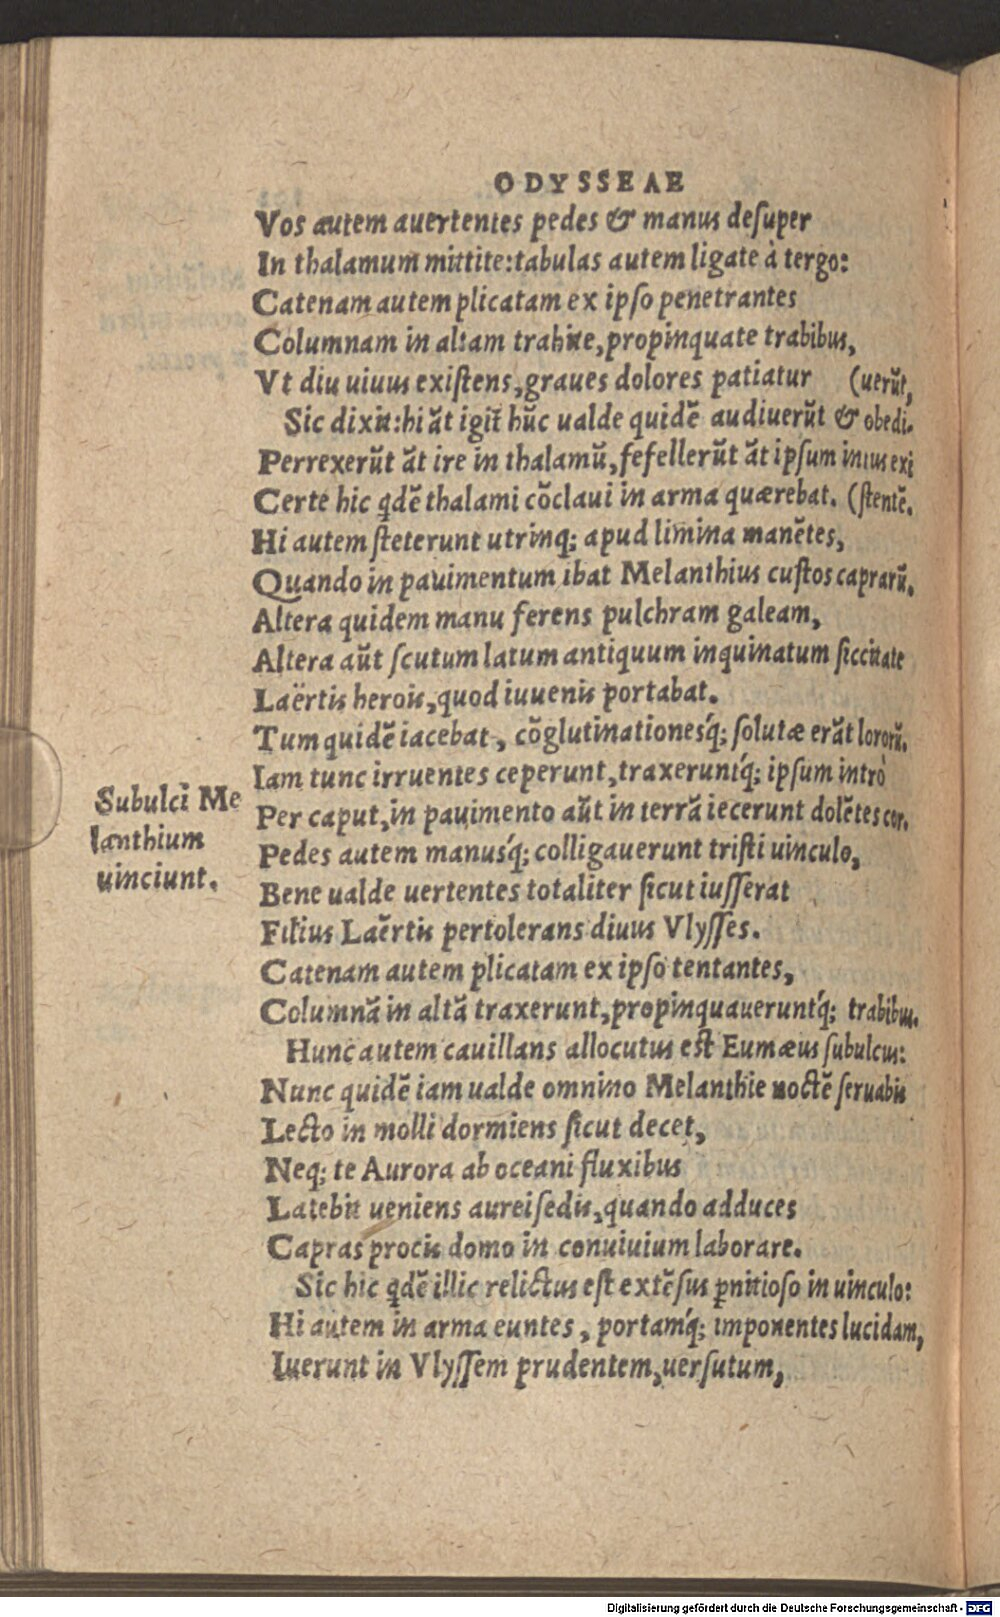 ODYSSEAE
Vos autem auertentes pedes & manus deſuper
In thalamum mittite:tabulas autem ligate à tergo:
Catenam autem plicatam ex ipſo penetrantes
Columnam in altam trahite,propinquate trabibus,
Vt diu uiuus exiſtens,graues dolores patiatur (uerūt,
Sic dixit:hi āt igit̄ hūc ualde quidē audiuerūt & obedi.
Perrexerūt āt ire in thalamū,fefellerūt āt ipſum intus exi
Certe hic qdē thalami cōclaui in arma quærebat. (ſtentē.
Hi autem ſteterunt utrinq; apud limina manētes,
Quando in pauimentum ibat Melanthius cuſtos caprarū.
Altera quidem manu ferens pulchram galeam,
Altera aūt ſcutum latum antiquum inquinatum ſiccitate
Laërtis herois,quod iuuenis portabat.
Tum quidē iacebat, cōglutinationesq́; ſolutæ erāt lororū.
Iam tunc irruentes ceperunt,traxeruntq́; ipſum intrò
Subulci Me
lanthium
uinciunt.
Per caput,in pauimento aūt in terrā iecerunt dolētes cor.
Pedes autem manusq́; colligauerunt triſti uinculo,
Bene ualde uertentes totaliter ſicut iuſſerat
Filius Laërtis pertolerans diuus Vlyſſes.
Catenam autem plicatam ex ipſo tentantes,
Columnā in altā traxerunt,propinquaueruntq́; trabibus.
Hunc autem cauillans allocutus eſt Eumæus ſubulcus:
Nunc quidē iam ualde omnino Melanthie noctē ſeruabis
Lecto in molli dormiens ſicut decet,
Neq; te Aurora ab oceani fluxibus
Latebit ueniens aureiſedis,quando adduces
Capras procis domo in conuiuium laborare.
Sic hic qdē illic relictus eſt extēſus ꝑnitioſo in uinculo:
Hi autem in arma euntes, portamq́; imponentes lucidam,
Iuerunt in Vlyſſem prudentem,uerſutum,
Digitalisierung gefördert durch die Deutsche Forschungsgemeinschaft - DFG